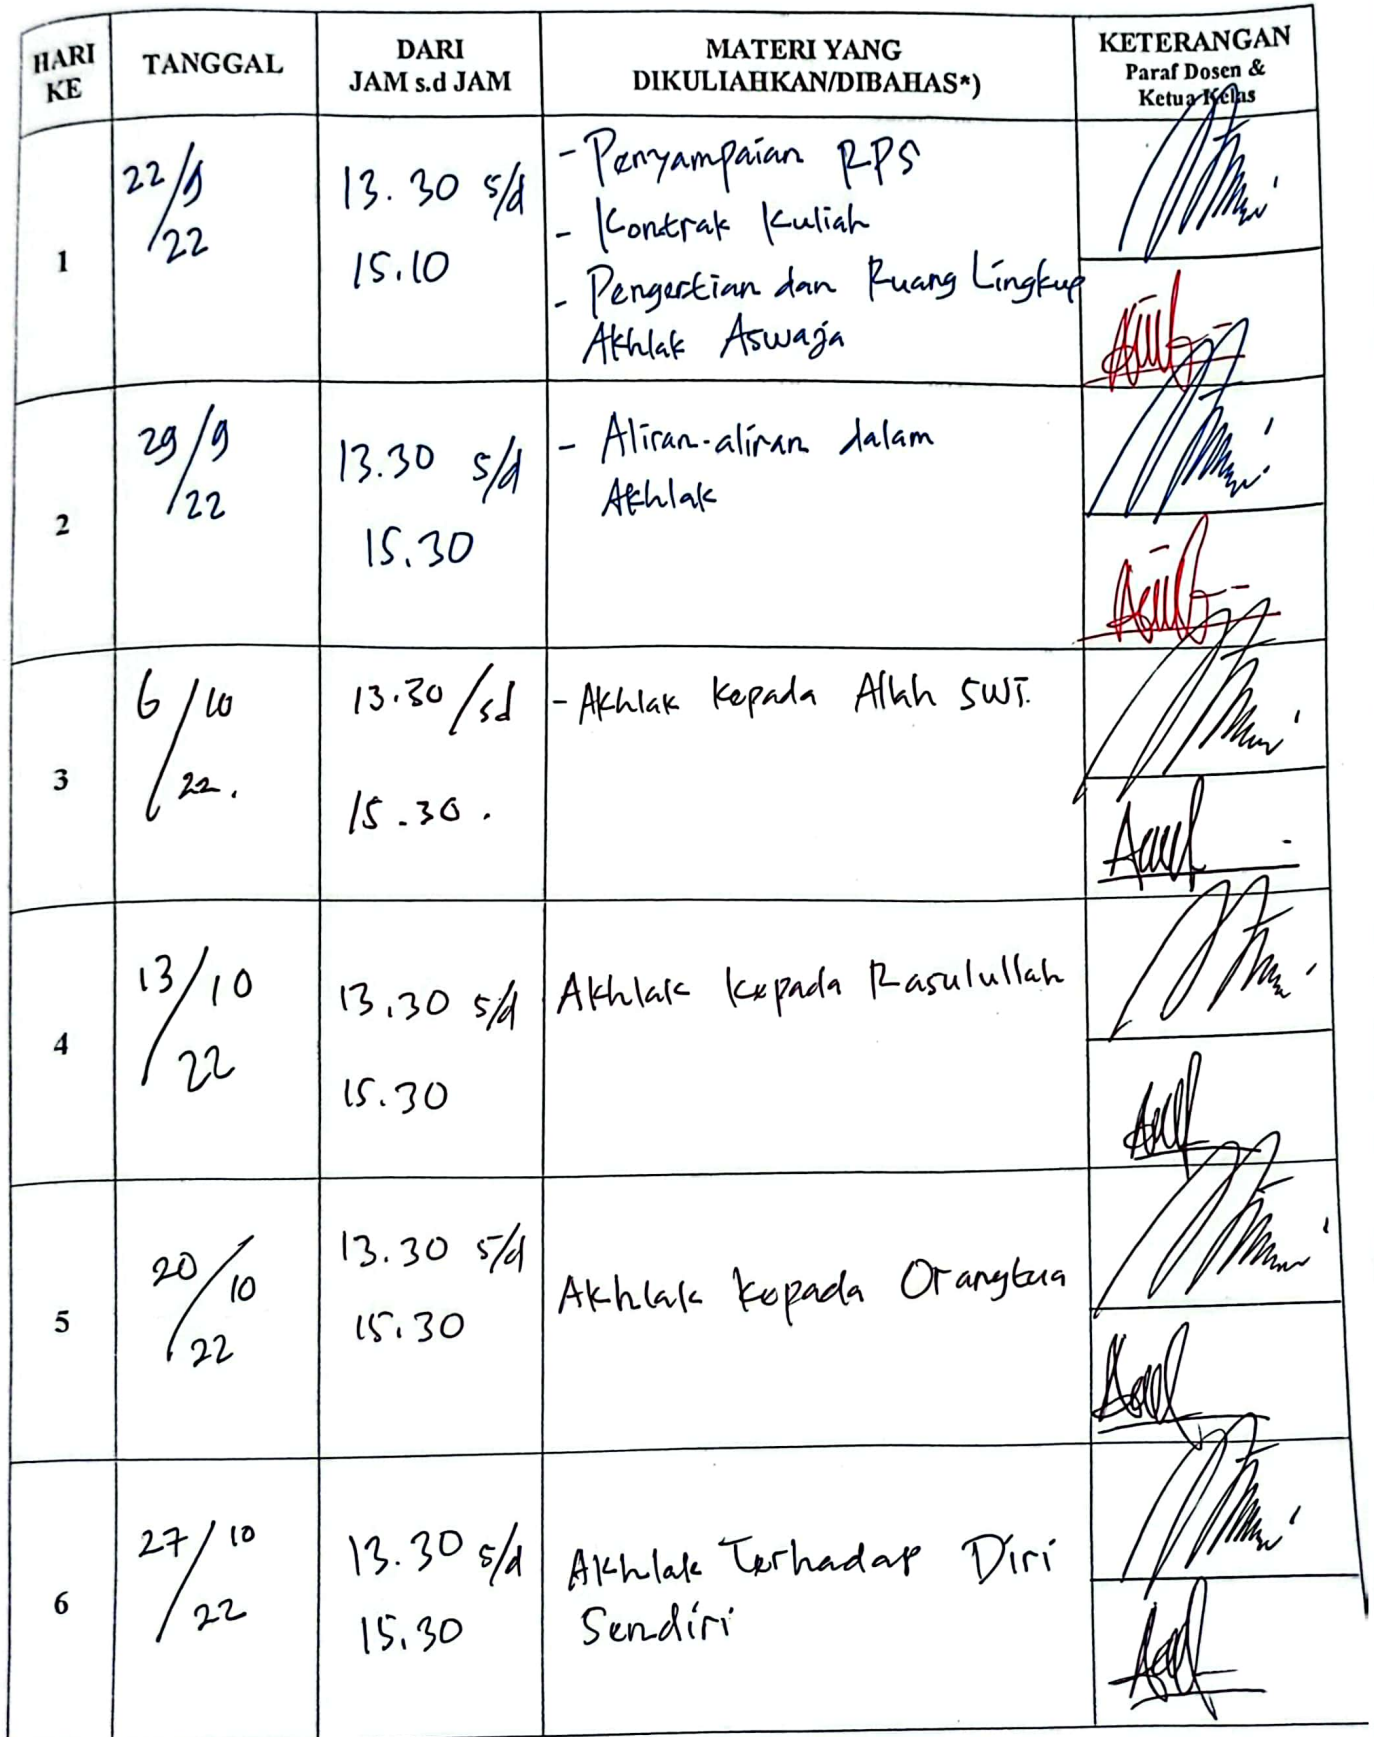 HARI KE
TANGGAL
DARI
JAM s.d JAM
MATERI YANG
DIKULIAHKAN/DIBAHAS*)
KETERANGAN
Paraf Dosen &
Ketua Kelas
1
22/9
/22
13.30 s/d
15.10
- Penyampaian RPS
- Kontrak Kuliah
- Pengertian dan Ruang Lingkup
Akhlak Aswaja
2
29/9
/22
13.30 s/d
15.30
- Aliran-aliran dalam
Akhlak
3
6/10
/22.
13.30/sd
15.30.
- Akhlak kepada Allah SWT.
4
13/10
/22
13.30 s/d
15.30
Akhlak kepada Rasulullah
5
20/10
/22
13.30 s/d
15.30
Akhlak kepada Orangtua
6
27/10
/22
13.30 s/d
15.30
Akhlak Terhadap Diri
Sendiri